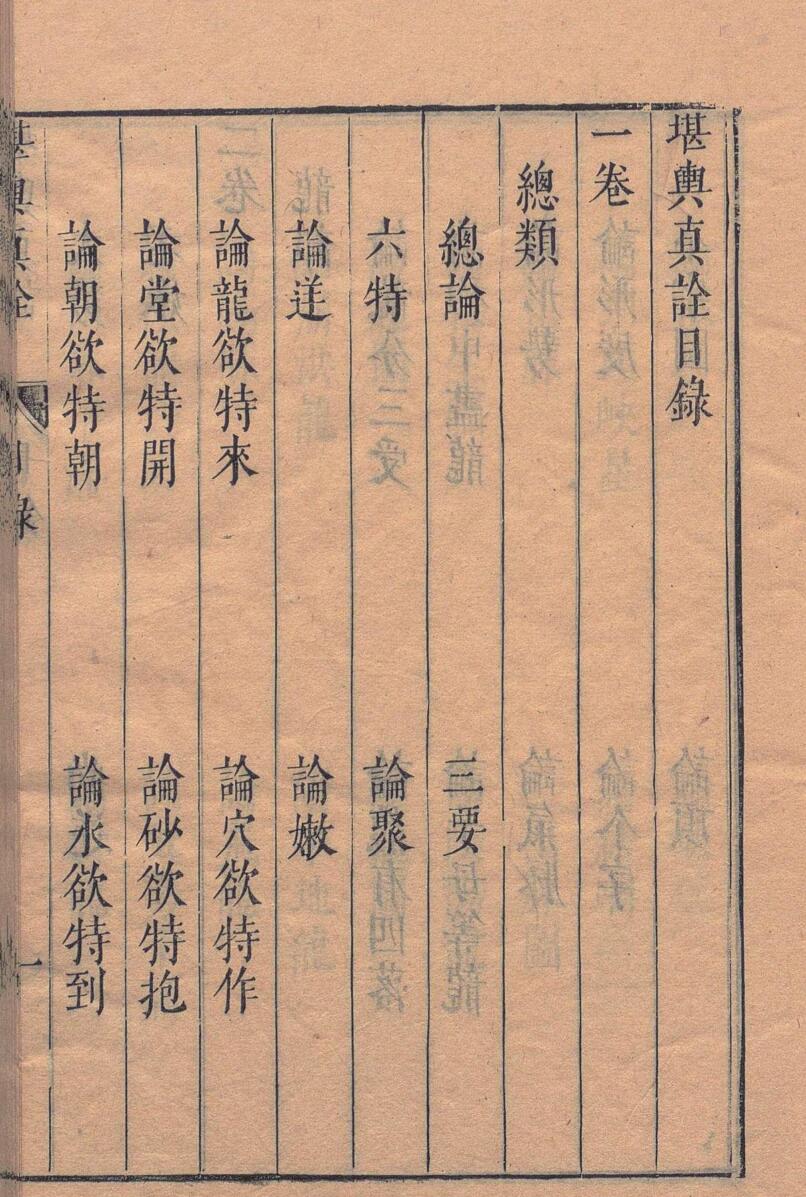 堪輿真詮目錄
一卷
總類
總論 三要
六特 論聚
論逆 論嫩
論龍欲特來 論穴欲特作
論堂欲特開 論砂欲特抱
論朝欲特朝 論水欲特到
堪輿真詮 目錄 一